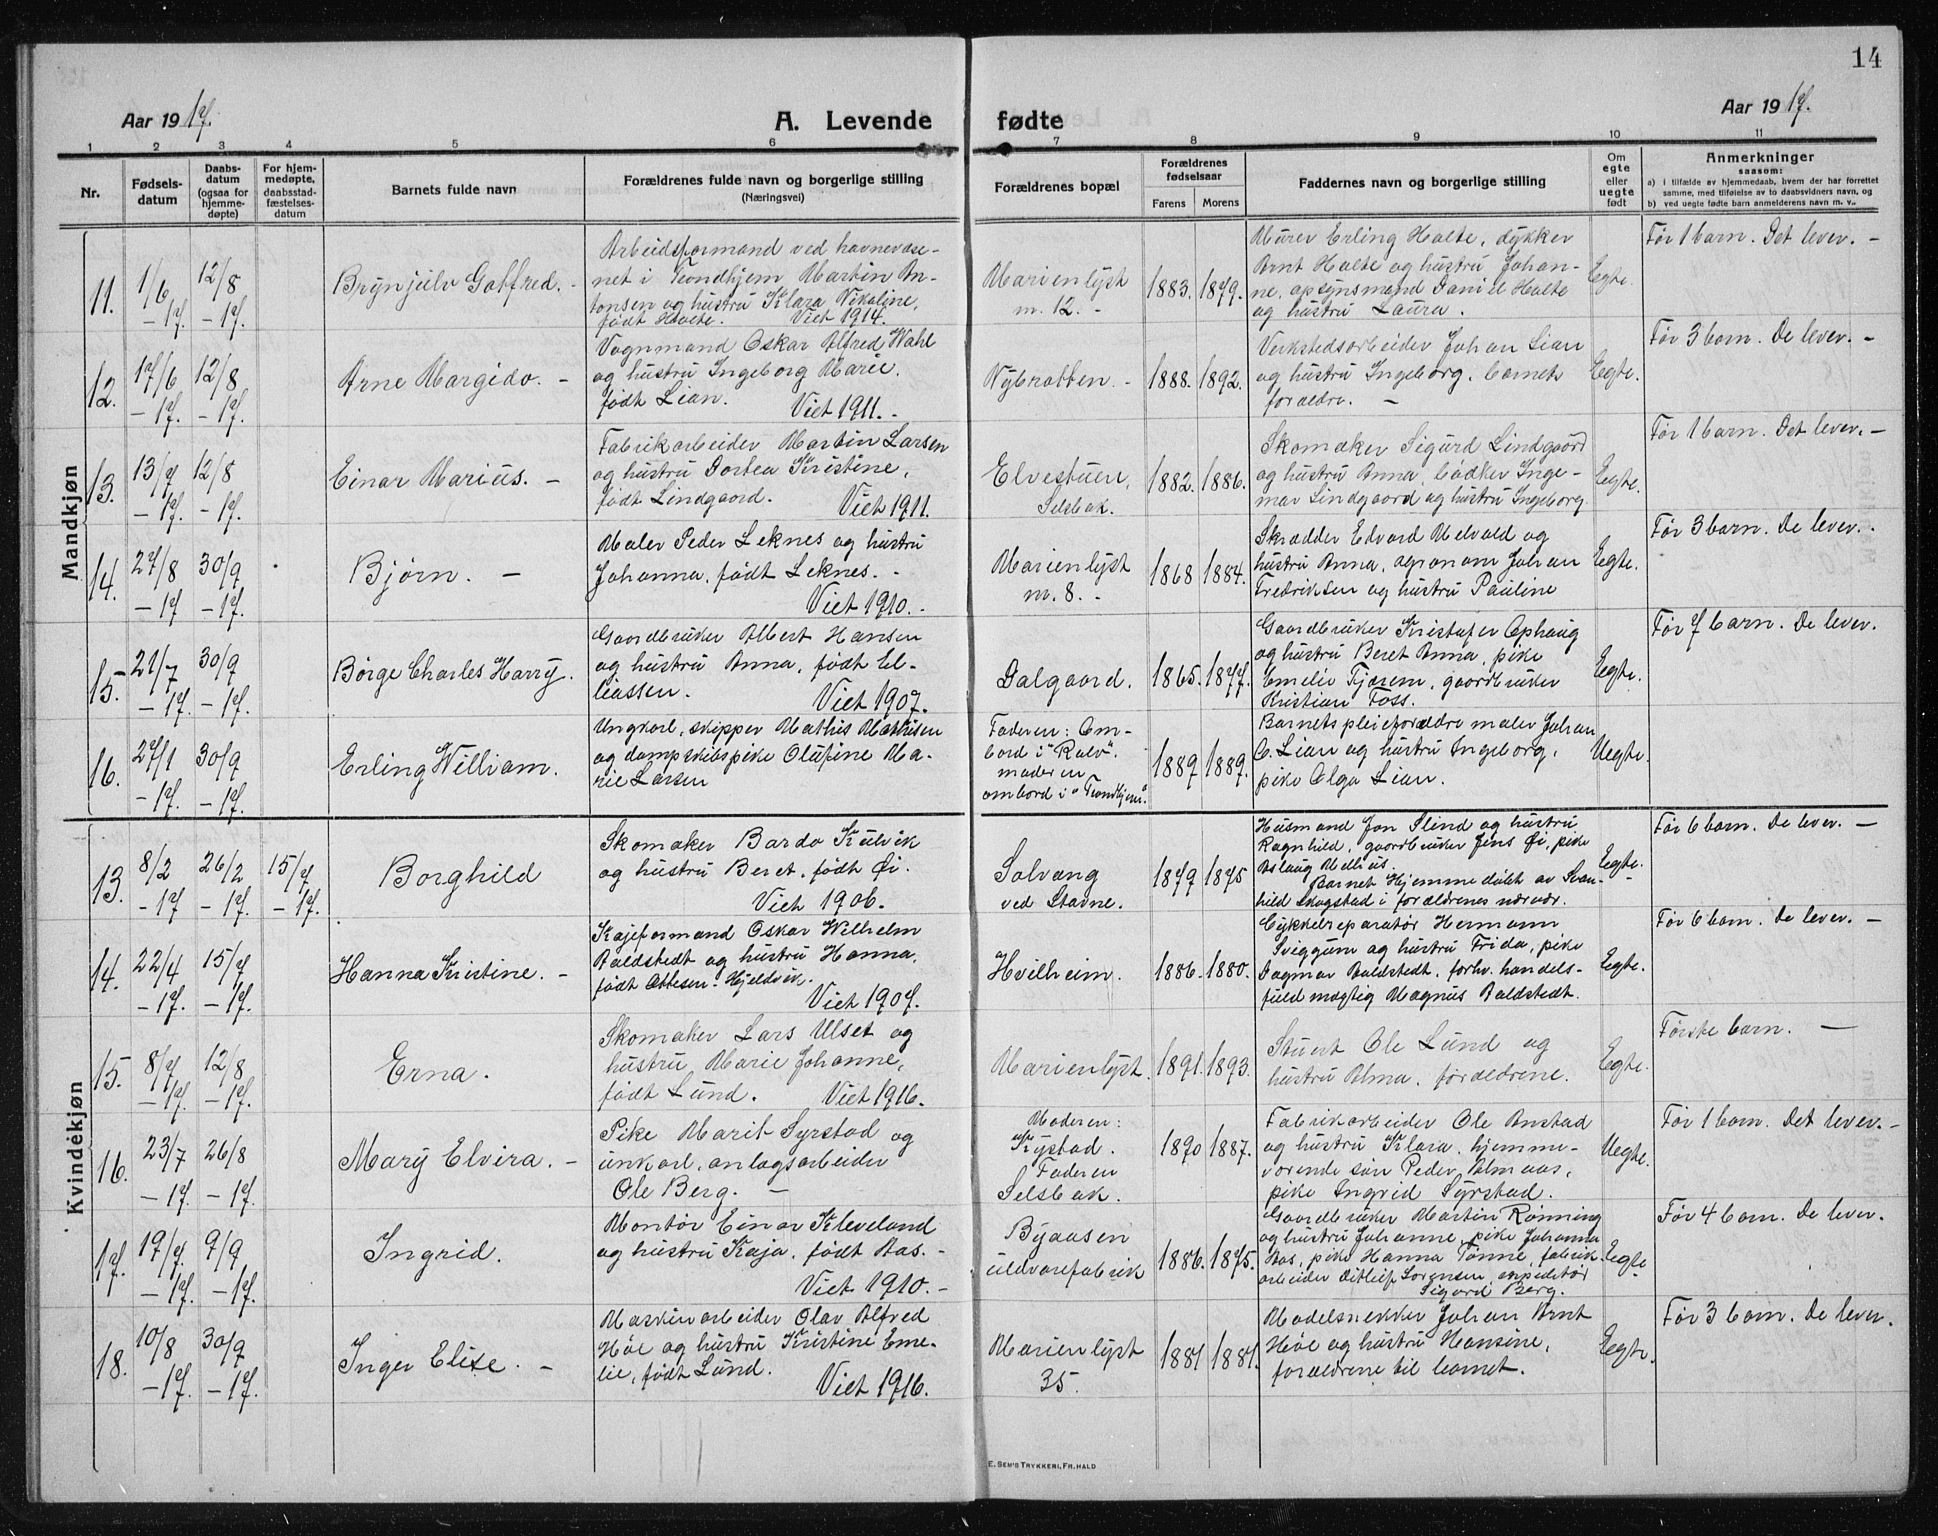 14
Aar 1917.
A. Levende fødte
Aar 1917.
1 2 3 4 5 6 7 8 9 10 11
Nr.
Fødsels-
datum
Daabs-
datum
(ogsaa for
hjemme-
døpte)
For hjem-
medøpte,
daabsstad-
fæstelses-
datum
Barnets fulde navn
Forældrenes fulde navn og borgerlige stilling
(Næringsvei)
Forældrenes bopæl
Forældrenes
fødselsaar
Farens Morens
Faddernes navn og borgerlige stilling
Om
egte
eller
uegte
født
Anmerkninger
saasom:
a) i tilfælde av hjemmedaab, hvem der har forrettet
samme, med tilføielse av to daabsvidners navn, og
b) ved uegte fødte barn anmelderens navn m. v..
Mandkjøn
11.
1/6
-17.
12/8
-17.
Brynjulv Gotfred. -
Arbeidsformand ved havnevæse-
net i Trondhjem Martin An-
tonsen og hustru Klara Nikoline,
født Holte. Viet 1914.
Marienlyst
m. 12. -
1883. 1879.
Murer Erling Holte, dykker
Arnt Holte og hustru Johan-
ne, opsynsmand Daniel Holte
og hustru Laura.
Egte.
Før 1 barn. Det lever. -
12.
17/6
-17.
12/8
-17.
Arne Margido. -
Vognmand Oskar Alfred Wahl
og hustru Ingeborg Marie,
født Lian.
Viet 1911. -
Nybrotten. -
1888. 1892.
Verkstedsarbeider Johan Lian
og hustru Ingeborg, barnets
forældre. -
Egte.
Før 3 barn. De lever. -
13.
13/7
-17.
12/8
-17.
Einar Marius. -
Fabrikarbeider Martin Larsen
og hustru Dortea Kristine,
født Lindgaard. Viet 1911.
Elvestuen,
Selsbak.
1882. 1886.
Skomaker Sigurd Lindgaard
og hustru Anna, bødker Inge-
mar Lindgaard og hustru Ingeborg.
Egte.
Før 1 barn. Det lever. -
14.
27/8
-17.
30/9
-17.
Bjørn. -
Maler Peder Leknes og hustru
Johanna, født Leknes. -
Viet 1910. -
Marienlyst
m. 8. -
1868 1884.
Skrædder Edvard Melvold og
hustru Anna, agronom Johan
Fredriksen og hustru Pauline
Egte.
Før 3 barn. De lever.
15.
21/7
-17.
30/9
-17.
Børge Charles Harry.
Gaardbruker Albert Hansen
og hustru Anna, født El-
liassen.
Viet 1907.
Dalgaard.
1865. 1877.
Gaardbruker Kristofer Ophaug
og hustru Beret Anna, pike
Emelie Tjørem, gaardbruker
Kristian Foss.
Egte.
Før 7 barn. De lever.
16.
27/1
-17.
30/9
-17.
Erling William.
Ungkarl, skipper Mathis Mathisen
og dampskibspike Olufine Ma-
rie Larsen
Faderen: Om-
bord i "Ralv".
moderen
ombord i "Trondhjem".
1889 1889.
Barnets pleieforældre maler Johan
C. Lian og hustru Ingeborg,
pike Olga Lian.
Uegte.
Kvindekjøn
13.
8/2
-17
26/2
-17.
15/7
-17.
Borghild
Skomaker Bardo Kulvik
og hustru Beret, født Øi.
Viet 1906.
Solvang
ved Stavne.
1879 1875
Husmand Jon Slind og hustru
Ragnhild, gaardbruker Jens Øi, pike
Aslaug Melhus.
Barnet hjemmedøbt av Svan-
hild Skogstad i forældrenes nærvær.
Egte.
Før 6 barn. De lever. -
14.
22/4
-17.
15/7
-17.
Hanna Kristine. -
Kajeformand Oskar Wilhelm
Boldstedt og hustru Hanna,
født Ottesen-Hjeldvik.
Viet 1907.
Hvilheim.
1886. 1880.
Cykkelreparatør Hermann
Sviggum og hustru Frida, pike
Dagmar Boldstedt, forhv. handels-
fuldmægtig Magnus Boldstedt.
Egte.
Før 6 barn. De lever. -
15.
8/7
-17.
12/8
-17.
Erna.
Skomaker Lars Ulset og
hustru Marie Johanne,
født Lund. Viet 1916.
Marienlyst.
1891. 1893.
Stuert Ole Lund og
hustru Alma, forældrene.
Egte.
Første barn. -
16.
23/7
-17.
26/8
-17.
Mary Elvira. -
Pike Marit Syrstad og
unkarl, anlagsarbeider
Ole Berg. -
Moderen:
Kystad.
Faderen
Selsbak.
1890 1887.
Fabrikarbeider Ole Anstad
og hustru Klara, hjemme-
værende søn Peder Almaas,
pike Ingrid Syrstad.
Uegte.
Før 1 barn. Det lever. -
17.
19/7
-17.
9/9
-17.
Ingrid.
Montør Einar Kleveland
og hustru Kaja, født Aas. -
Viet 1910. -
Byaasen
uldvarefabrik
1886. 1875.
Gaardbruker Martin Rønning
og hustru Johanne, pike Johanna
Aas, pike Hanna Tønne, fabrik-
arbeider Ditleif Sørensen, expeditør
Sigurd Berg.
Egte.
Før 4 barn. De lever.
18.
10/8
-17.
30/9
-17.
Inger Elise. -
Maskinarbeider Olav Alfred
Høe og hustru Kristine Eme-
lie, født Lund.
Viet 1916.
Marienlyst
35.
1881 1881.
Modelsnekker Johan Arnt
Høe og hustru Hansine,
forældrene til barnet.
Egte.
Før 3 barn. De lever.
E. SEM'S TRYKKERI, FR.HALD